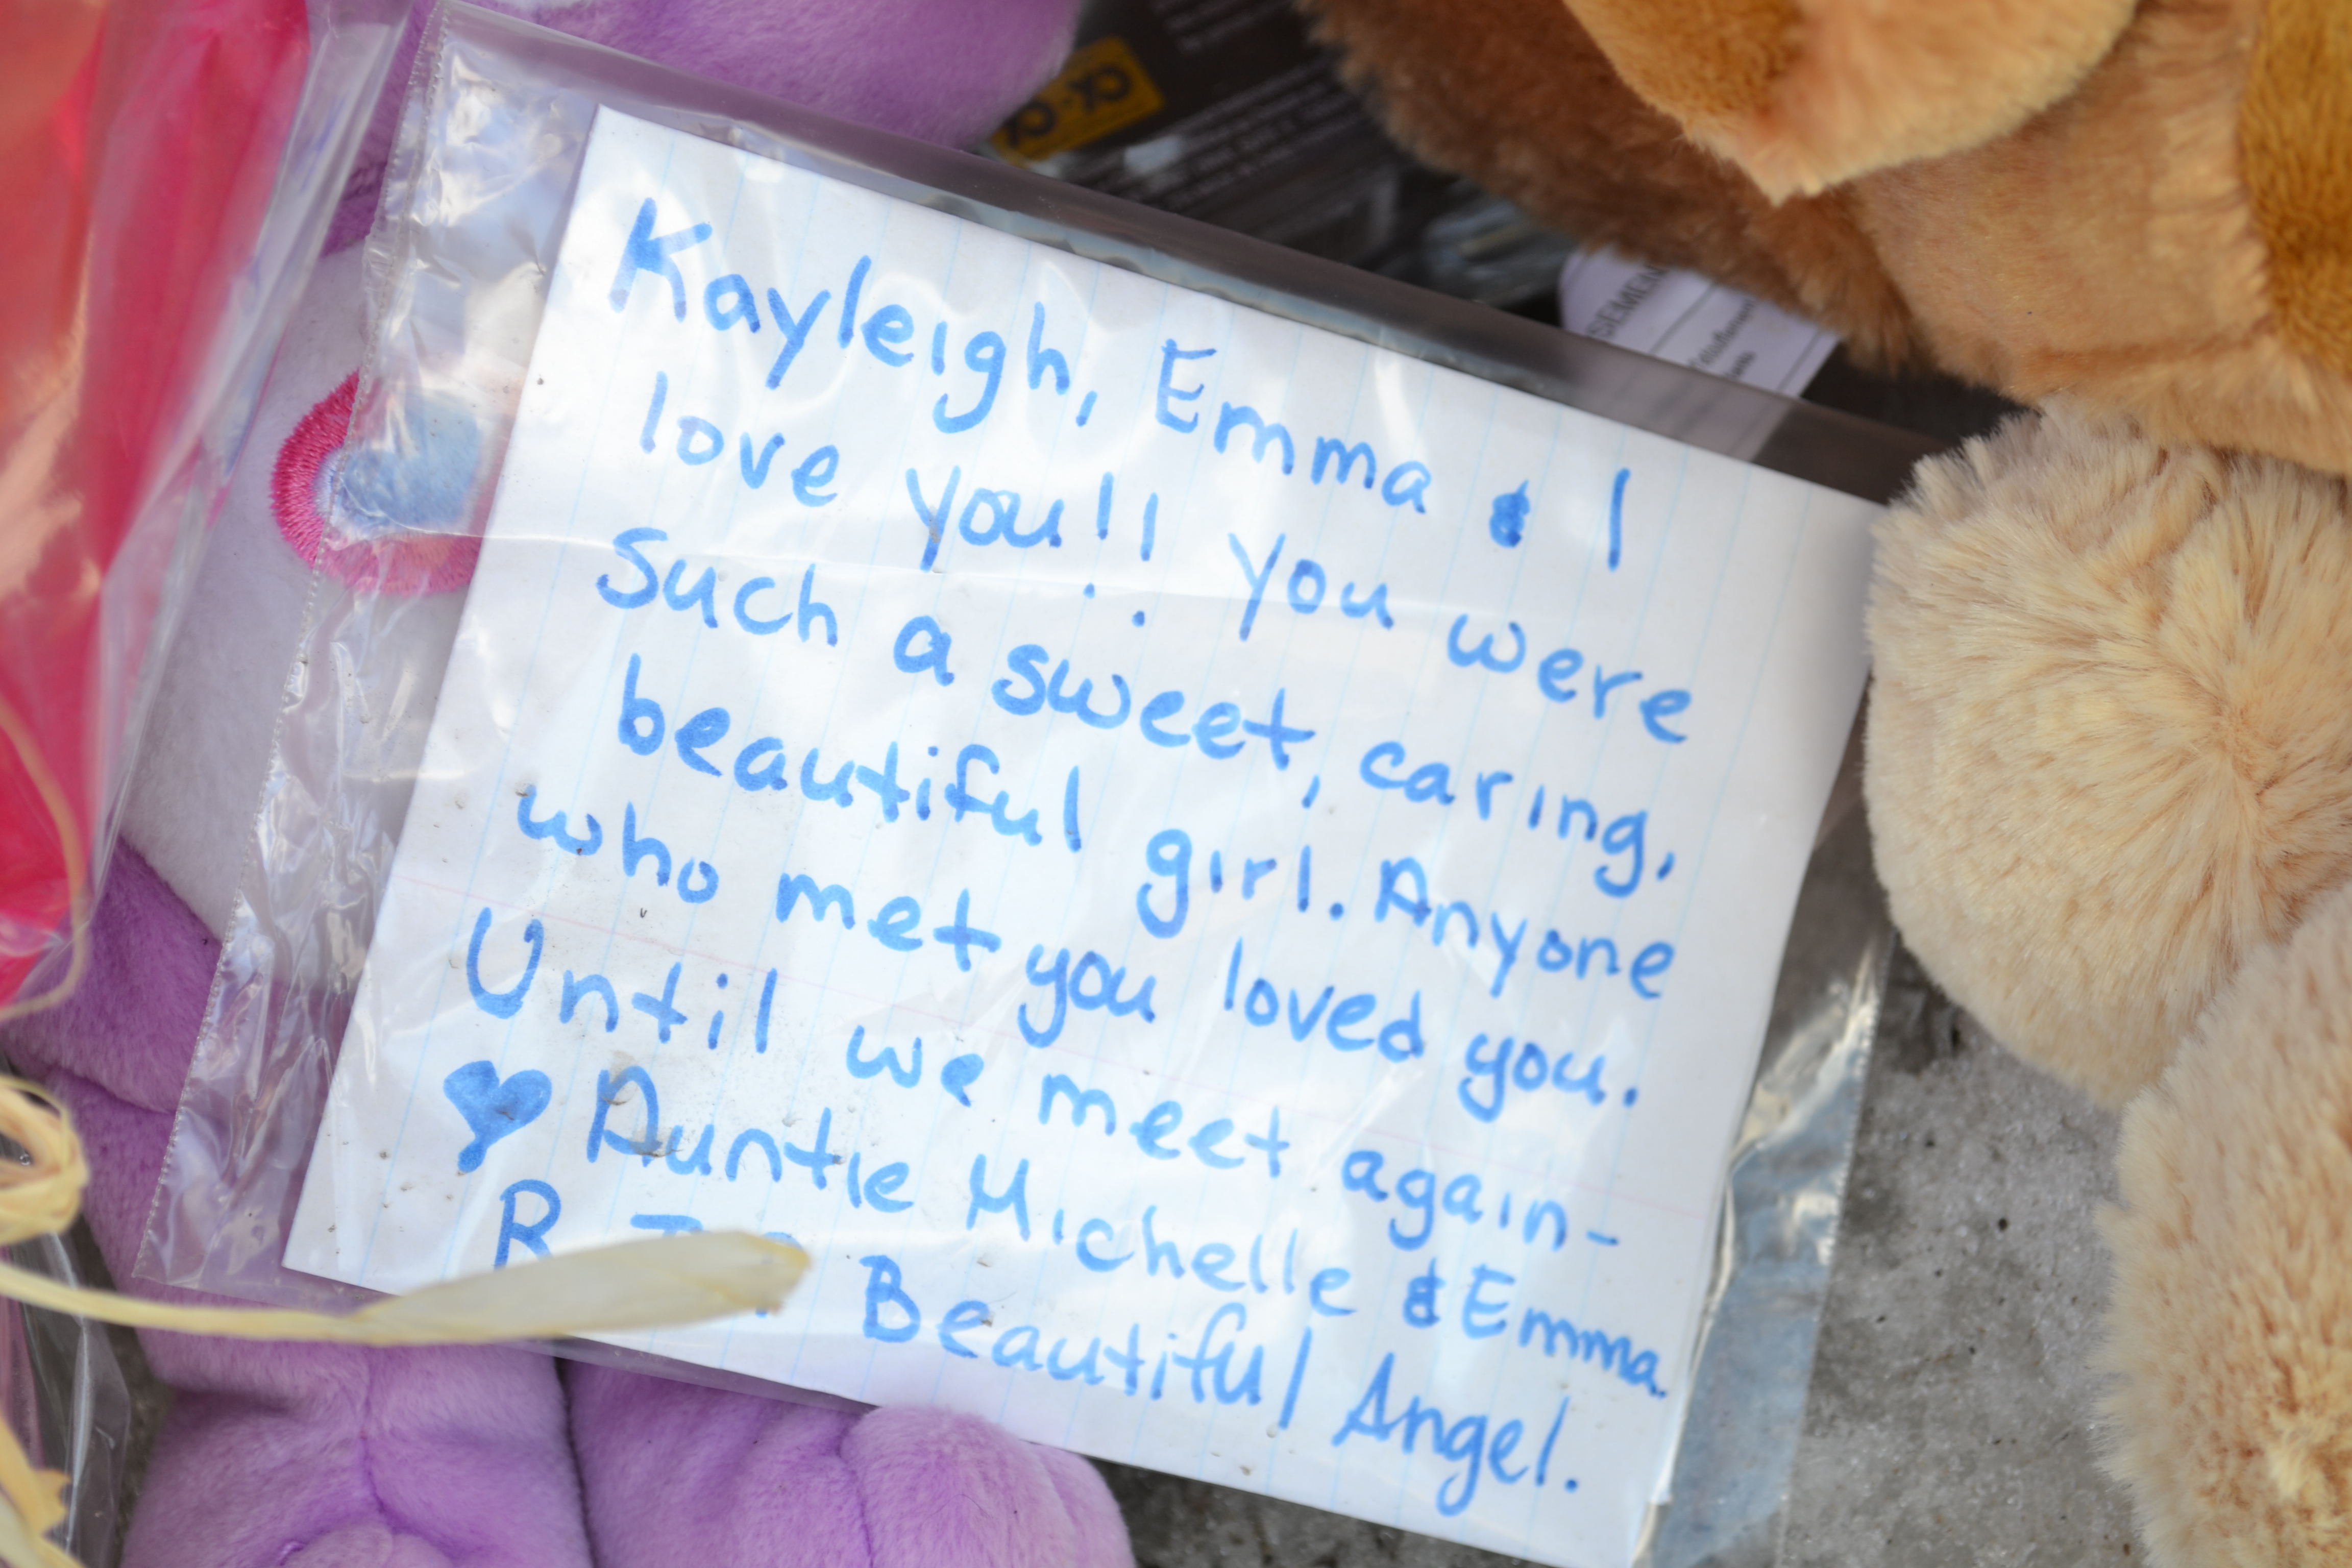 Kayleigh, Emma & I
love you!! You were
Such a sweet, caring,
beautiful girl. Anyone
who met you loved you.
Until we meet again-
♥ Auntie Michelle & Emma.
R Beautiful Angel.